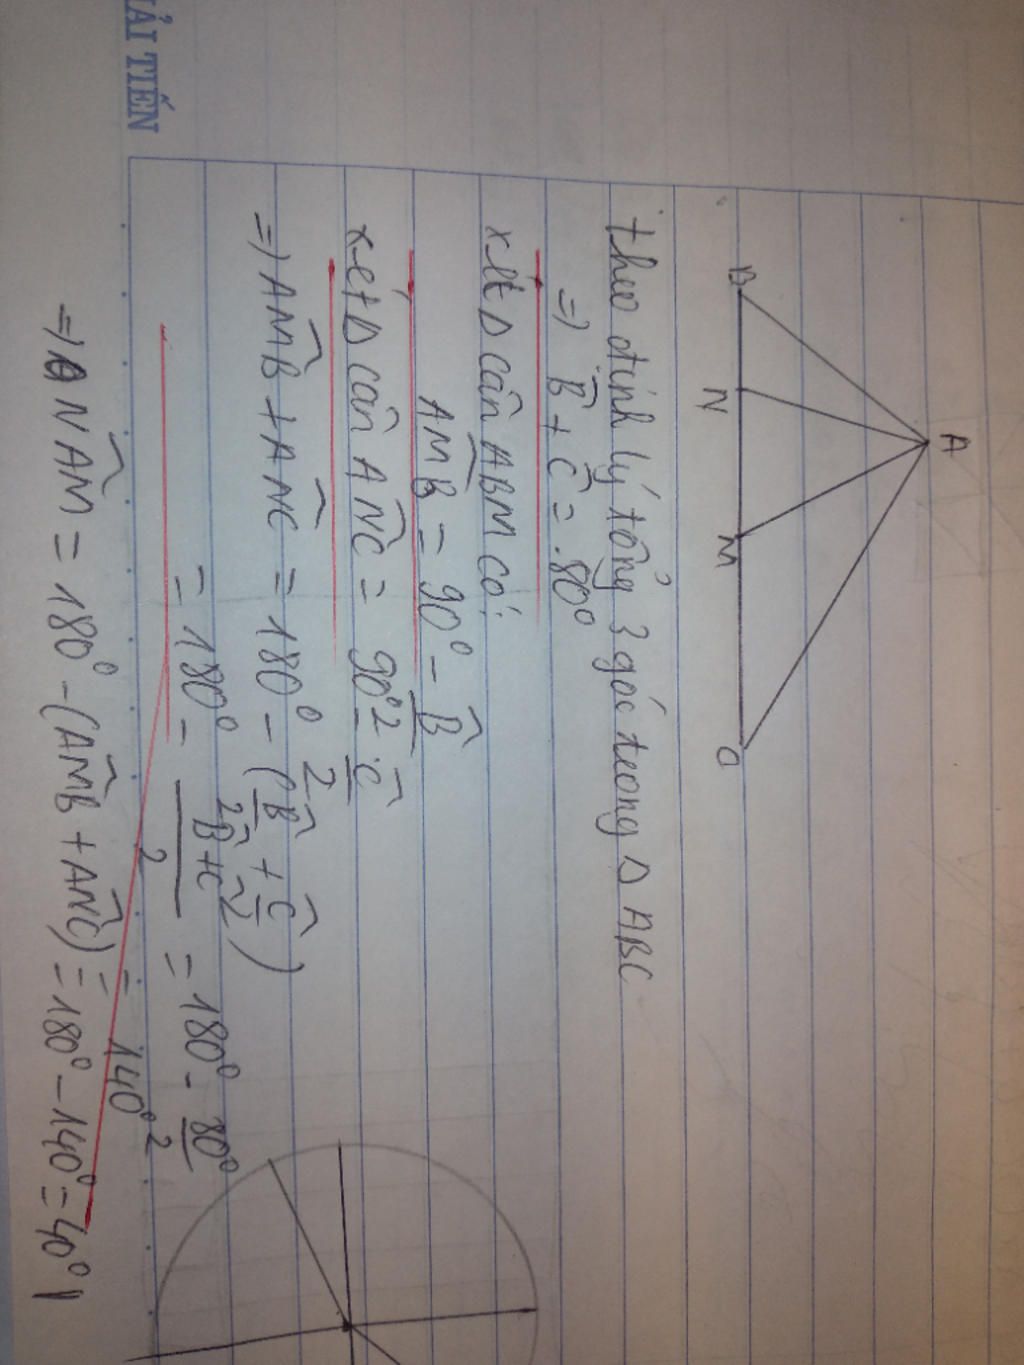 HẢI TIẾN
A
B N M C
theo định lý tổng 3 góc trong Δ ABC
=> B̂ + Ĉ = 80⁰
xét Δ cân ABM có:
AM̂B = 90⁰ - B̂/2
xét Δ cân AN̂C = 90⁰ - Ĉ/2
=> AM̂B + AN̂C = 180⁰ - (B̂/2 + Ĉ/2)
= 180⁰ - (B̂+Ĉ)/2 = 180⁰ - 80⁰/2
= 140⁰
=> NÂM = 180⁰ - (AM̂B + AN̂C) = 180⁰ - 140⁰ = 40⁰